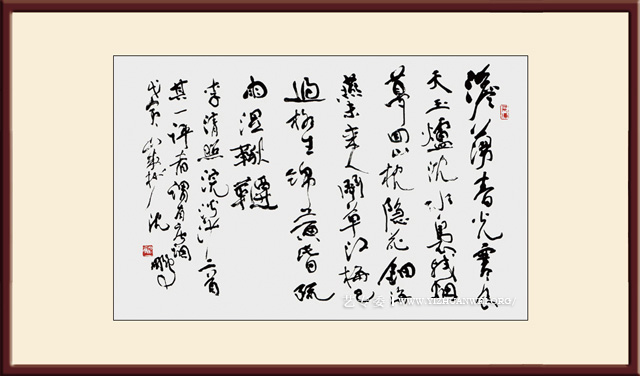 澹蕩春光寒食
天玉爐沈水裊殘烟
夢回山枕隱花鈿海
燕未來人鬥草江梅已
過柳生綿黃昏疏
雨濕鞦韆
李清照浣溪沙二首
其一評者謂有唐調
戊寅 沈鵬